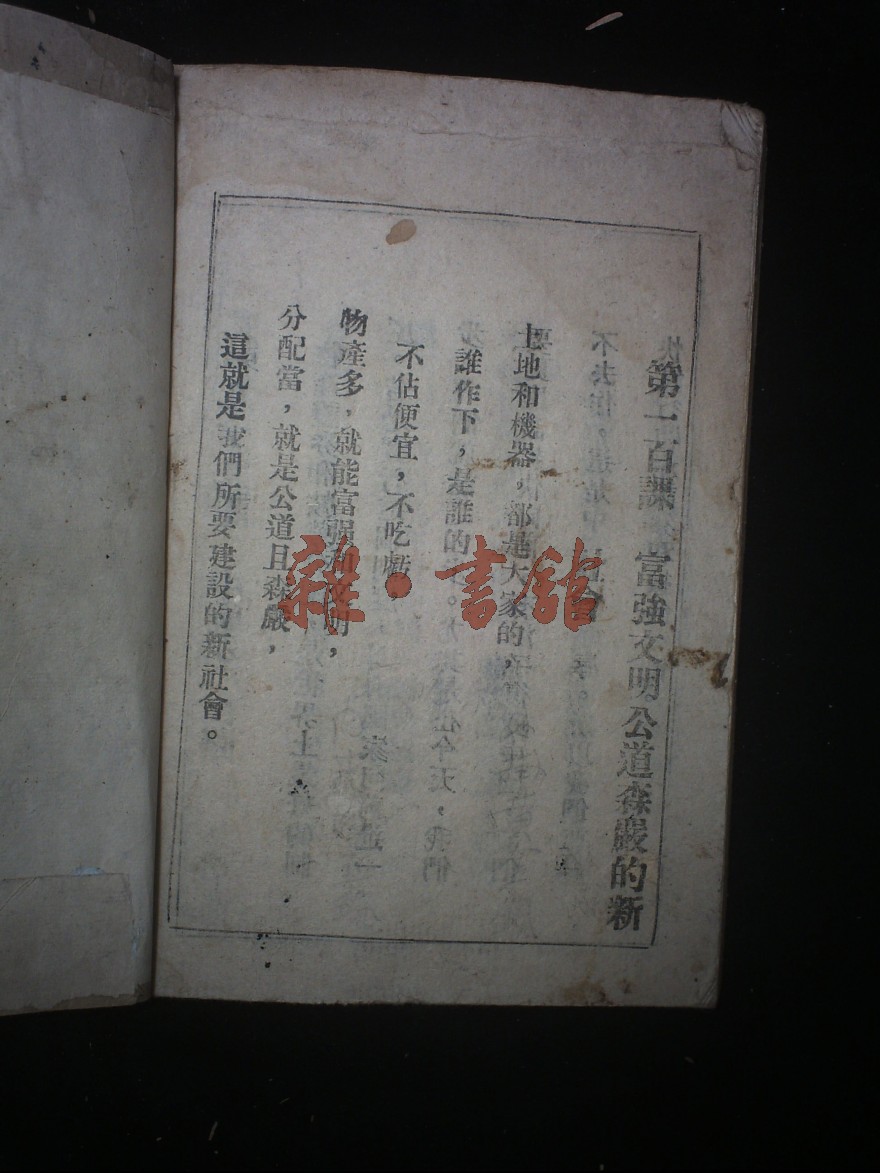 第一百課 富強文明公道森嚴的新
社會
土地和機器，都是大家的，
誰作下，是誰的
不佔便宜，不吃虧，
物產多，就能富强和文明，
分配當，就是公道且森嚴，
這就是我們所要建設的新社會。
雜·書館